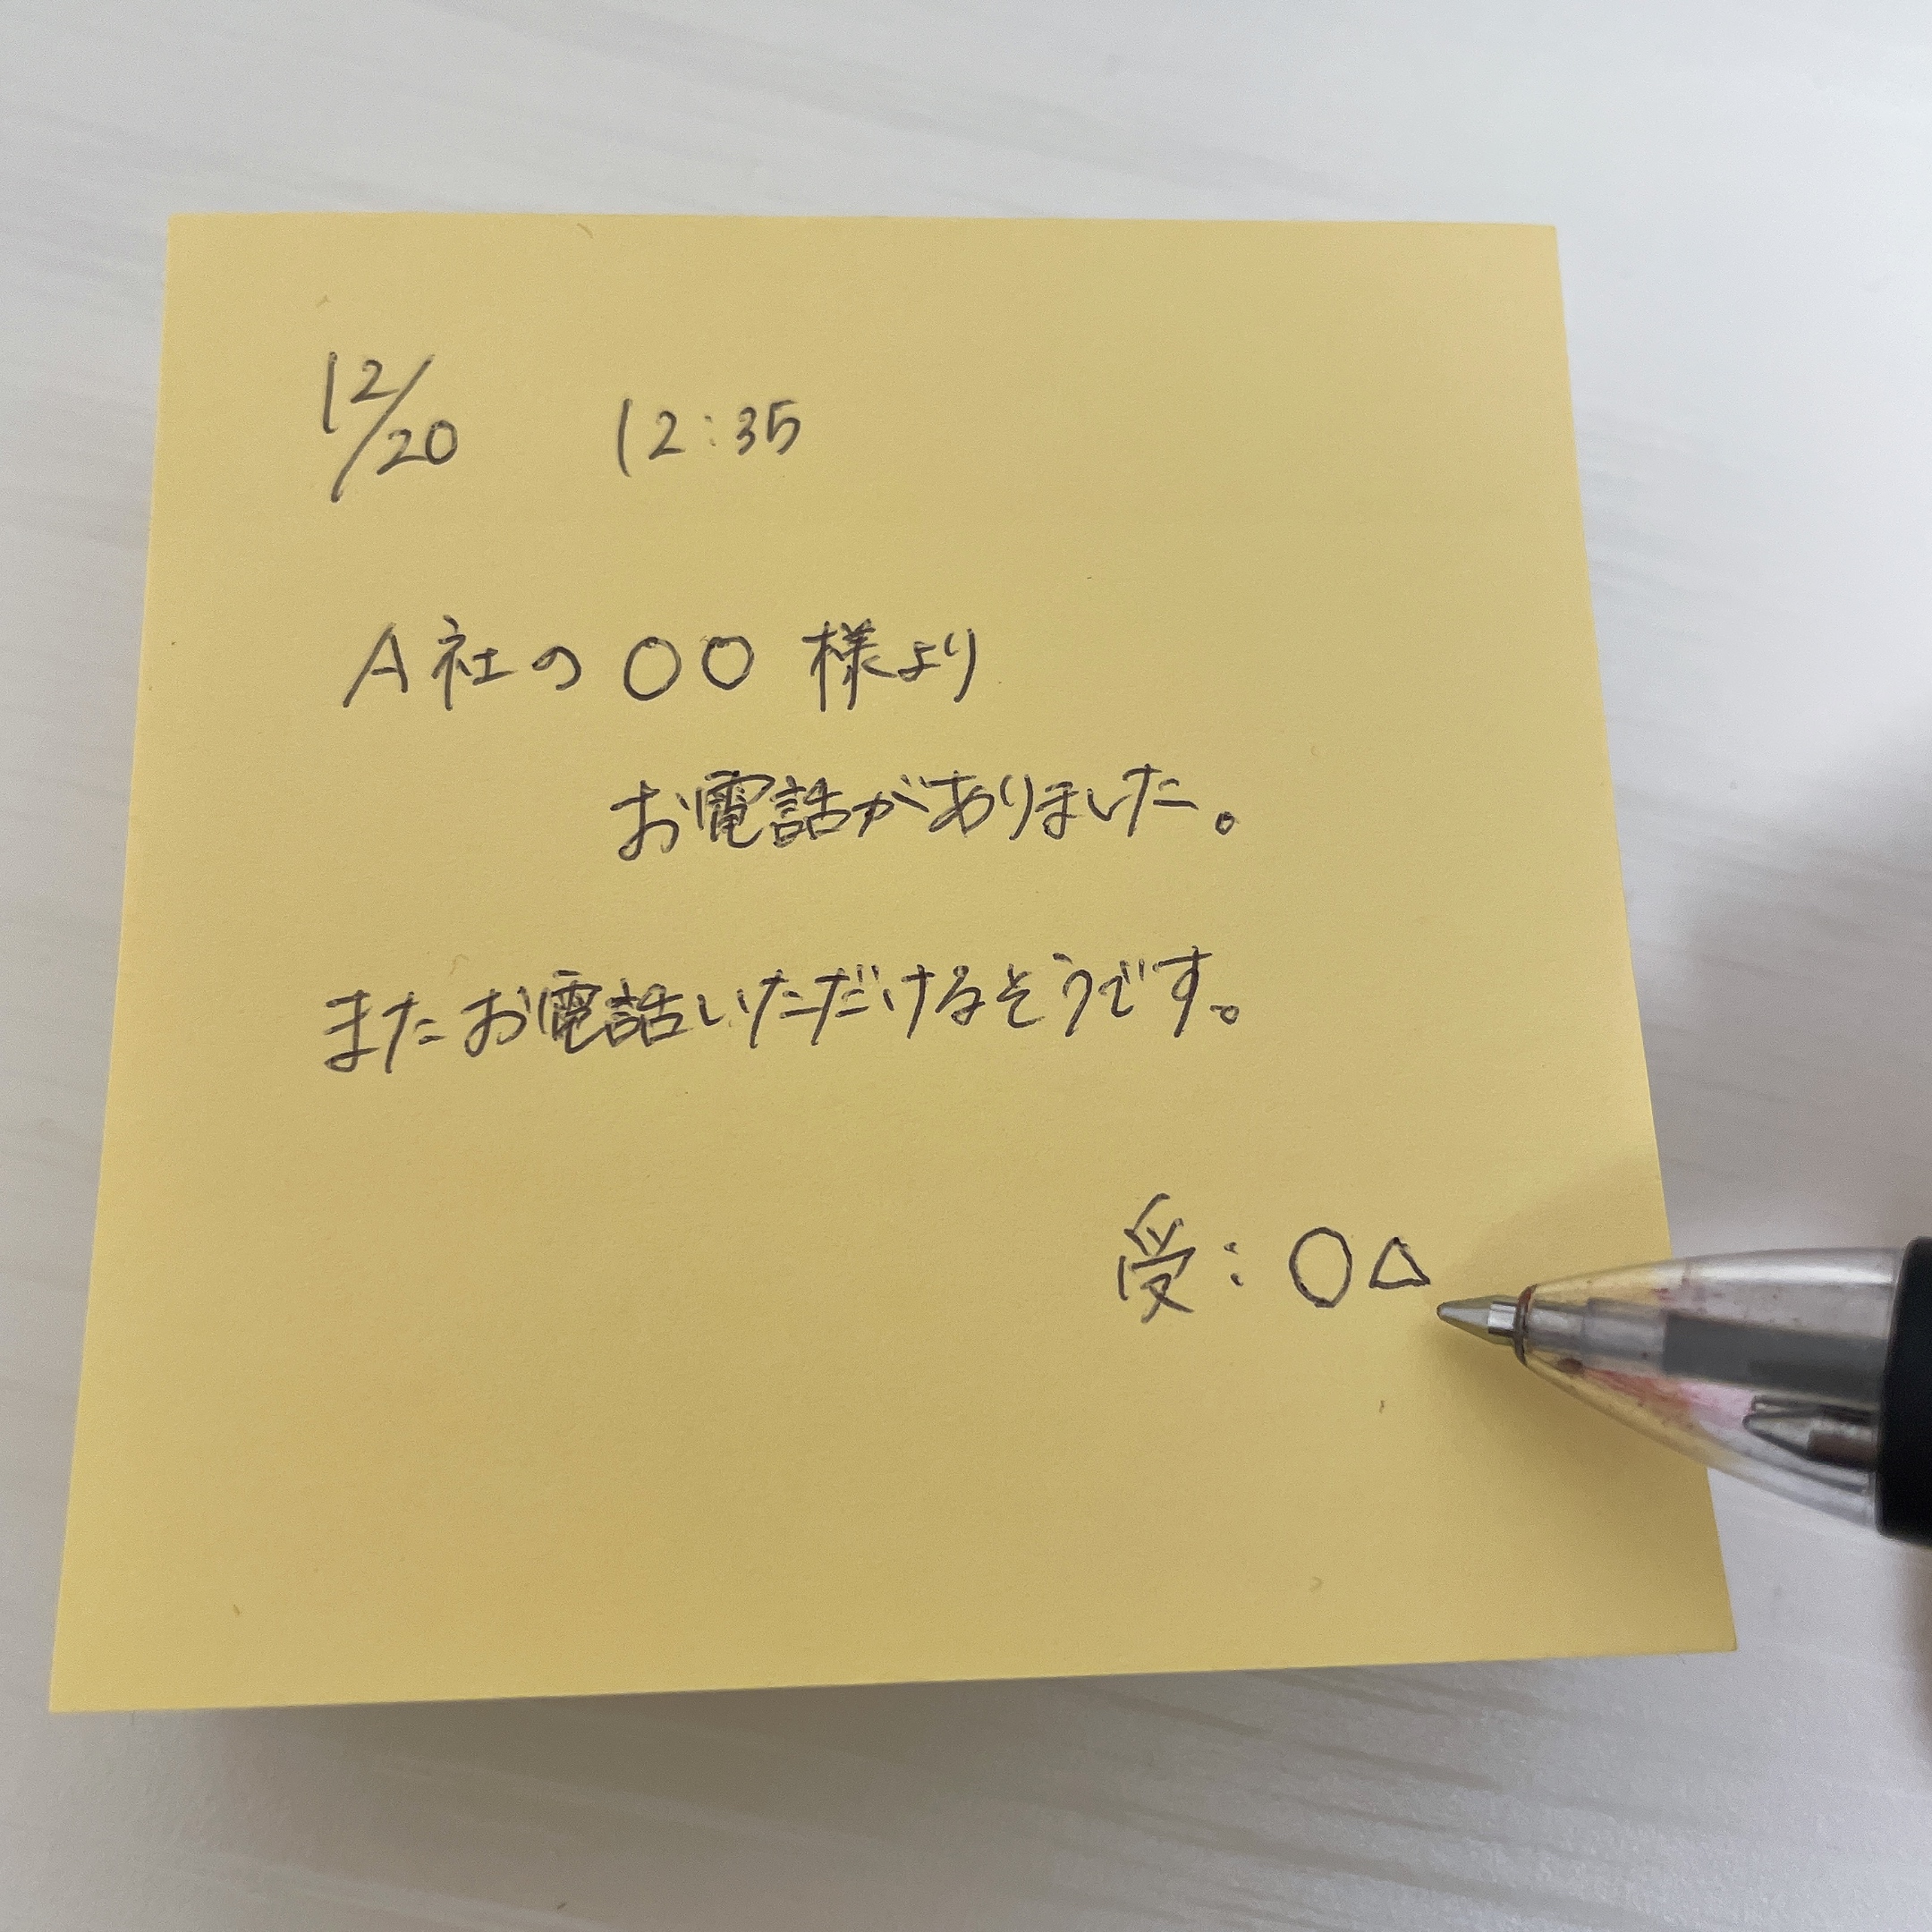 12/20 12:35
A社の○○様より
お電話がありました。
またお電話いただけるそうです。
受:○△